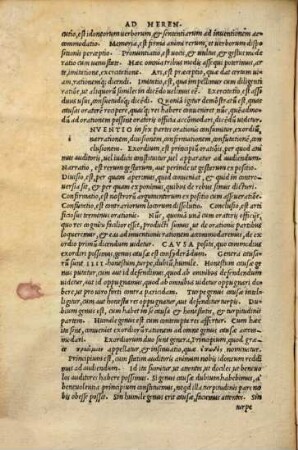 AD HEREN
cutio, est idoneorum uerborum & sententiarum ad inuentionem ac
commodatio. Memoria, est firma animi rerum, et uerborum dispo
sitionis perceptio. Pronunciatio, est uocis, & uultus, & gestus mode
ratio cum uenustate. Haec omnia tribus modis assequi poterimus, ar
te, imitatione, exercitatione. Ars, est praeceptio, quae dat certam uiam,
rationemq; dicendi. Imitatio, est, qua impellimur cum diligenti
ratione, ut aliquorum similes in dicendo uelimus esse. Exercitatio, est assi
duus usus, consuetudoq; dicendi. Quoniam igitur demonstratum est, quas
causas oratorem recipere, quasq; res habere conueniret, nunc, quemadmo
dum ad orationem possint oratoris officia accommodari, dicendum uidetur.
INVENTIO in sex partes orationis consumitur, exordium, nar
rationem, diuisionem, confirmationem, confutationem, con
clusionem. Exordium, est principium orationis, per quod ani
mus auditoris, uel iudicis constituitur, uel apparatur ad audiendum.
Narratio, est rerum gestarum, aut perinde ut gestarum, expositio.
Diuisio, est, per quam aperimus, quid conueniat, & quid in contro
uersia sit, & per quam exponimus, quibus de rebus simus dicturi.
Confirmatio, est nostrorum argumentorum expositio cum asseueratione.
Confutatio, est contrariorum locorum dissolutio. Conclusio, est arti
ficiosus terminus orationis. Nunc, quoniam una cum oratoris officijs,
quo res cognitu facilior esset, producti sumus, ut de orationis partibus
loqueremur, & eas ad inuentionis rationem accommodaremus, de ex
ordio primum dicendum uidetur. CAVSA posita, quo commodius
exordiri possimus, genus causae est considerandum. Genera causarum
sunt IIII. honestum, turpe, dubium, humile. Honestum causae ge
nus putatur, cum aut id defendimus, quod ab omnibus defendendum
uidetur, aut oppugnamus, quod ab omnibus uidetur oppugnari debe
re, ut pro uiro forti contra parricidam. Turpe genus causae intelli
gitur, cum aut honesta res oppugnatur, aut defenditur turpis. Du
bium genus est, cum habet in se causa & honestatis, & turpitudinis
partem. Humile genus est, cum contempta res affertur. Cum haec
ita sint, conueniet exordiorum rationem ad genus causae accom
modari. Exordiorum duo sunt genera, Principium, quod grae
ce προοίμιον appellatur, & insinuatio, quae ἔφοδος nominatur.
Principium est, cum statim auditoris animum nobis idoneum reddi
mus ad audiendum. Id ita sumitur, ut attentos, ut dociles, ut beneuo
los auditores habere possimus. Si genus causae dubium habebimus, à
beneuolentia principium constituemus, ne quid illa turpitudinis pars no
bis obesse possit. Sin humile genus erit causae, faciemus attentos. Sin
turpe